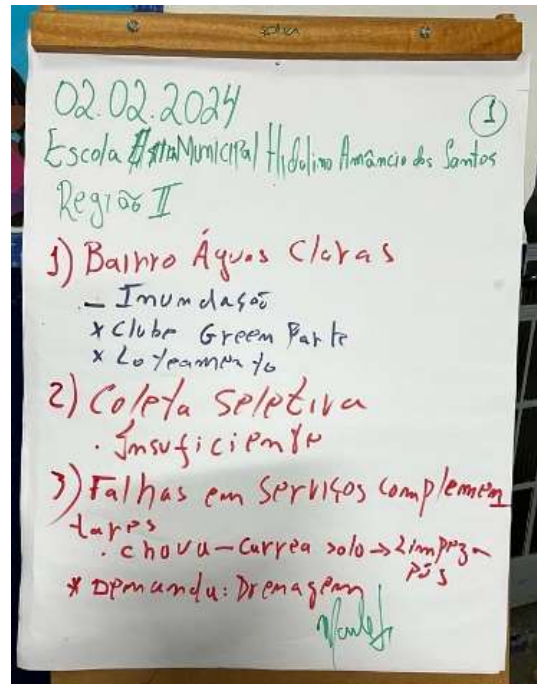 02.02.2024
1
Escola Municipal Hidolino Amâncio dos Santos
Região II
1) Bairro Águas Claras
- Inundação
x Clube Green Parke
x Loteamento
2) Coleta Seletiva
. Insuficiente
3) Falhas em Serviços complemen
tares
. chuva - Carrea solo → Limpeza
pós
* Demanda: Drenagem